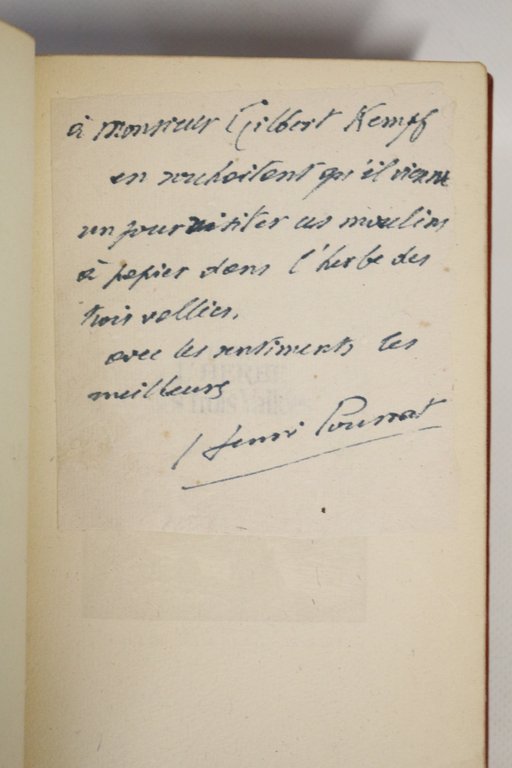 à Monsieur Gilbert Kempf
en souhaitant qu'il vienne
un jour visiter ces moulins
à papier dans l'herbe des
trois vallées,
avec les sentiments les
meilleurs
Henri Pourrat
L'HERBE
des trois vallées